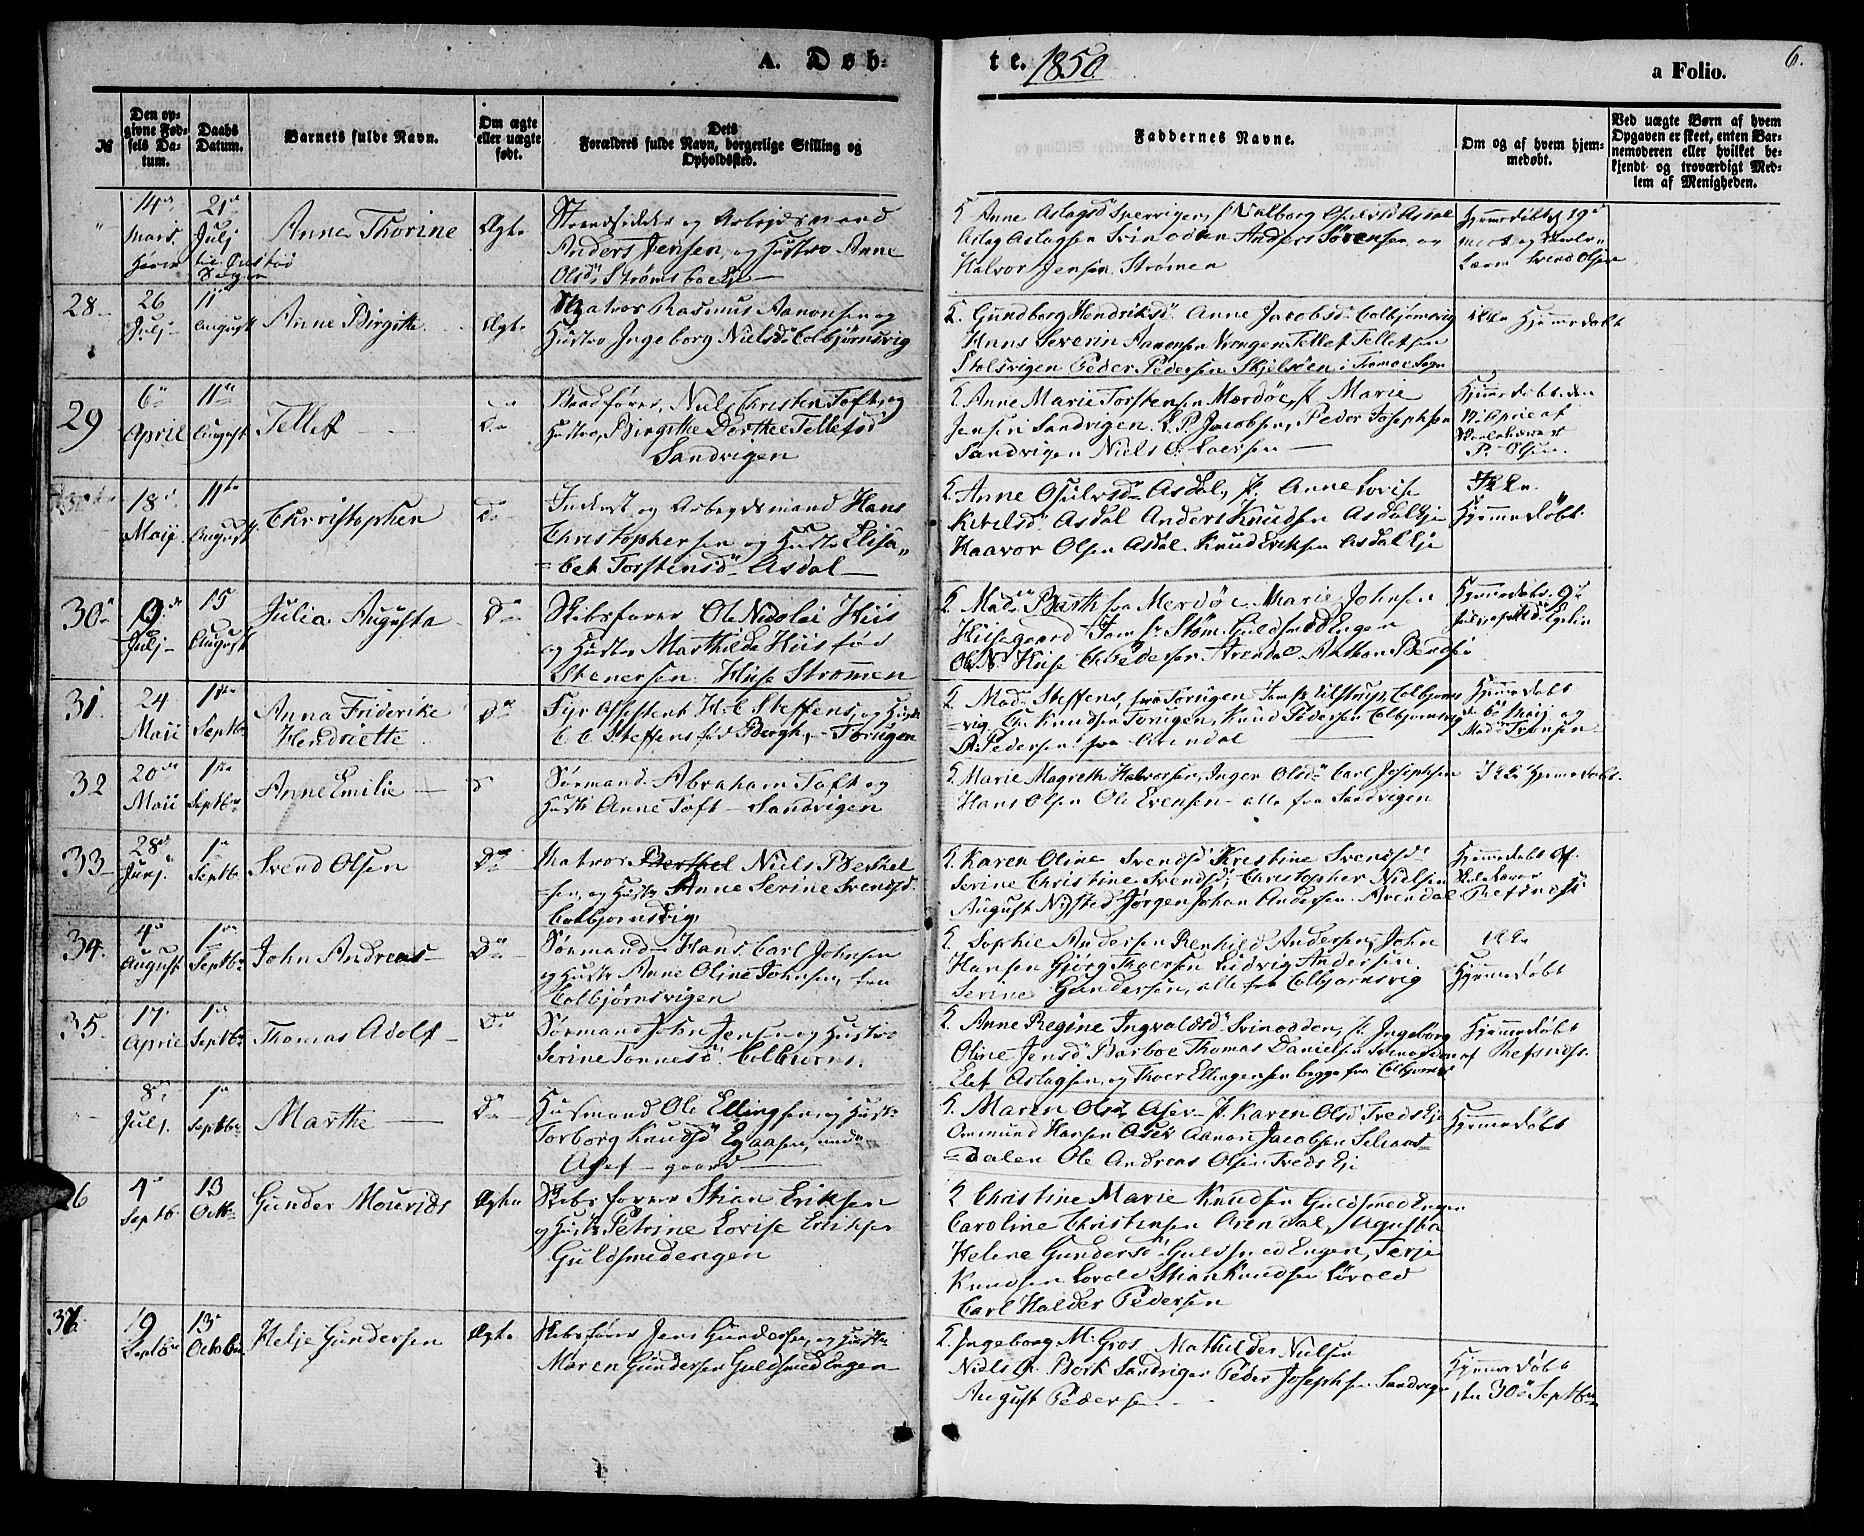 A. Døb-
te. 1850
a Folio.
6.
№
Den op-
givne Fød-
sels Da-
tum.
Daabs
Datum.
Barnets fulde Navn.
Om ægte
eller uægte
født.
Dets
Forældres fulde Navn, borgerlige Stilling og
Opholdssted.
Faddernes Navne.
Om og af hvem hjem-
medøbt.
Ved uægte Børn af hvem
Opgaven er skeet, enten Bar-
nemoderen eller hvilket be-
kjendt og troværdigt Med-
lem af Menigheden.
14de
Mars
21de
Julj
Anne Thorine
Ægte
Strandsidder og Arbejdsmand
Anders Jensen, og Hustro Anne
Olsd. Strømsboe Eje
Anne Aslagsd
Aslag Aslagsen Svinodden Anders Sørensen og
Halvor Jensen Strømen
Hjemmedøbt 19de
Svend Olsen
28
26
Julj
11
August
Anne Birgitte
Ægte
Matros Rasmus Aanonsen og
Hustro Ingeborg Nielsd. Colbjørnsvig
Gundborg Hendriksd. Anne Jacobsd. Colbjørnsvig
Hans Severin Aanonsen Vrengen Tellef Tellefsen
Stolsvigen Peder Pedersen Skjelsøen i Tromøe Sogn
ikke Hjemmedøbt
29
6te
April
11te
August
Tellef
Do
Baadfører, Niels Christen Toft, og
Hustro, Birgithe Dorthee Tellefsd
Sandvigen
Anne Marie Torstensen Mærdøe, Jf. Marie
Jensen Sandvigen. L. P. Jacobsen, Peder Josephsen
Sandvigen Niels C. Larsen
Hjemmedøbt den
April af
P. Olsen
18de
Maij
11te
August
Christopher
Do
Inderst og Arbejdsmand Hans
Christophersen og Hustro Elisa-
bet Torstensd. Asdal
Anne Osulvsd. Asdal, Jf. Anne Lovise
Ketelsd. Asdal Anders Knudsen Asdal Eje
Haavor Olsen Asdal. Knud Eriksen Asdal Eje
Ikke
Hjemmedøbt
30
Julj
15
August
Julia Augusta
Do
Skibsfører Ole Nicolai Hiis
og Hustro Marthilde Hiis født
Stenersen. Hiise Strømmen
Mad. Barth fra Merdøe Marie Johnsen
Hiisegaard Jomfr. Strøm Guldsmed Engen
Ole N. Hiise C. Pedersen Arendal. Anthon Bendsen
Hjemmedøbt 9de
31.
24
Maii
1ste
Septbr
Anna Friderike
Henriette
Do
Fyr Assistent H. C. Steffens, og Hustro
C. C. Steffens født Bergh, Torugen
Mad. Steffens, fra Torugen Jomfr. Ulstrup, Colbjørns-
vig, Knudsen Torugen, Knud Pedersen Colbjørnsvig
Pedersen fra Arendal
Hjemmedøbt
6te Maij og
Mad. Svensen
32
20de
Maii
1ste
Septbr
Anne Emilie
Sømand Abraham Toft og
Hustro Anne Toft Sandvigen
Marie Magreth Halvorsen, Inger Olsd. Carl Josephsen
Hans Olsen Ole Evensen alle fra Sandvigen
Ikke Hjemmedøbt.
33
28de
Junj.
1ste
Septbr
Svend Olsen
Do
Matros Berthel Niels Berthel-
sen, og Hustro Anne Serine Svendsd.
Colbjørnsvig
Karen Oline Svendsd. Kristine Svendsd.
Serine Christine Svendsd, Christopher Nielsen
August Nysted Jørgen Johan Andersen Arendal
Hjemmedøbt af
Refsnes
34.
4de
August
1ste
Septbr
John Andreas
Do
Sømand Hans Carl Johnsen
og Hustro Anne Oline Johnsen, fra
Colbjørnsvigen
Sophie Andersen Renhild Andersen, John
Hansen Gjørg Thoersen Ludvig Andersen
Serine Gundersen, alle fra Colbjørnsvig
Ikke
Hjemmedøbt
35.
17de
April
1ste
Septbr
Thomas Adolf
Do
Sømand John Jensen og Hustro
Serine Tønnesd. Colbjørns.
Anne Regine Ingvaldsd. Svinodden, Jf. Ingeborg
Oline Jensd. Barboe Thomas Danielsen Svinodden
Elef Aslagsen, og Thoer Ellingensen begge fra Colbjørnsv
Hjemmedøbt
af Refsnes.
8de
Julj.
1ste
Septbr
Marthe
Do
Husmand Ole Ellingsen og Hustro
Torborg Knudsd. Egaasen, under
Asef gaard
Maren Olsd. Asef Jf. Karen Olsd. Freds Eje
Ommund Hansen Asef Aanon Jacobsen
dalen Ole Andreas Olsen Freds Eje
Hjemmedøbt
36
4de
Septb.
13
Octb.
Gunder Mourids
Ægte
Skibsfører Stian Eriksen
og Hustro Petrine Lovise Eriksen
Guldsmedengen
Christine Marie Knudsen Guldsmed Engen
Caroline Christensen Arendal, Augusta
Helene Gundersd. Guldsmed Engen, Terje
Knudsen Lovold Stian Knudsen Lovold
Carl Halder Pedersen
37.
19
Septbr
13
October
Helje Gundersen
Ægte
Skibsfører Jens Gundersen, og Hustro
Maren Gundersen Guldsmed Engen
Ingeborg M. Gros Mathilde Nielsen
Niels Chr. Bork Sandvigen Peder Josephsen Sandvigen
August Pedersen
Hjemmedøbt
den 30te Septbr